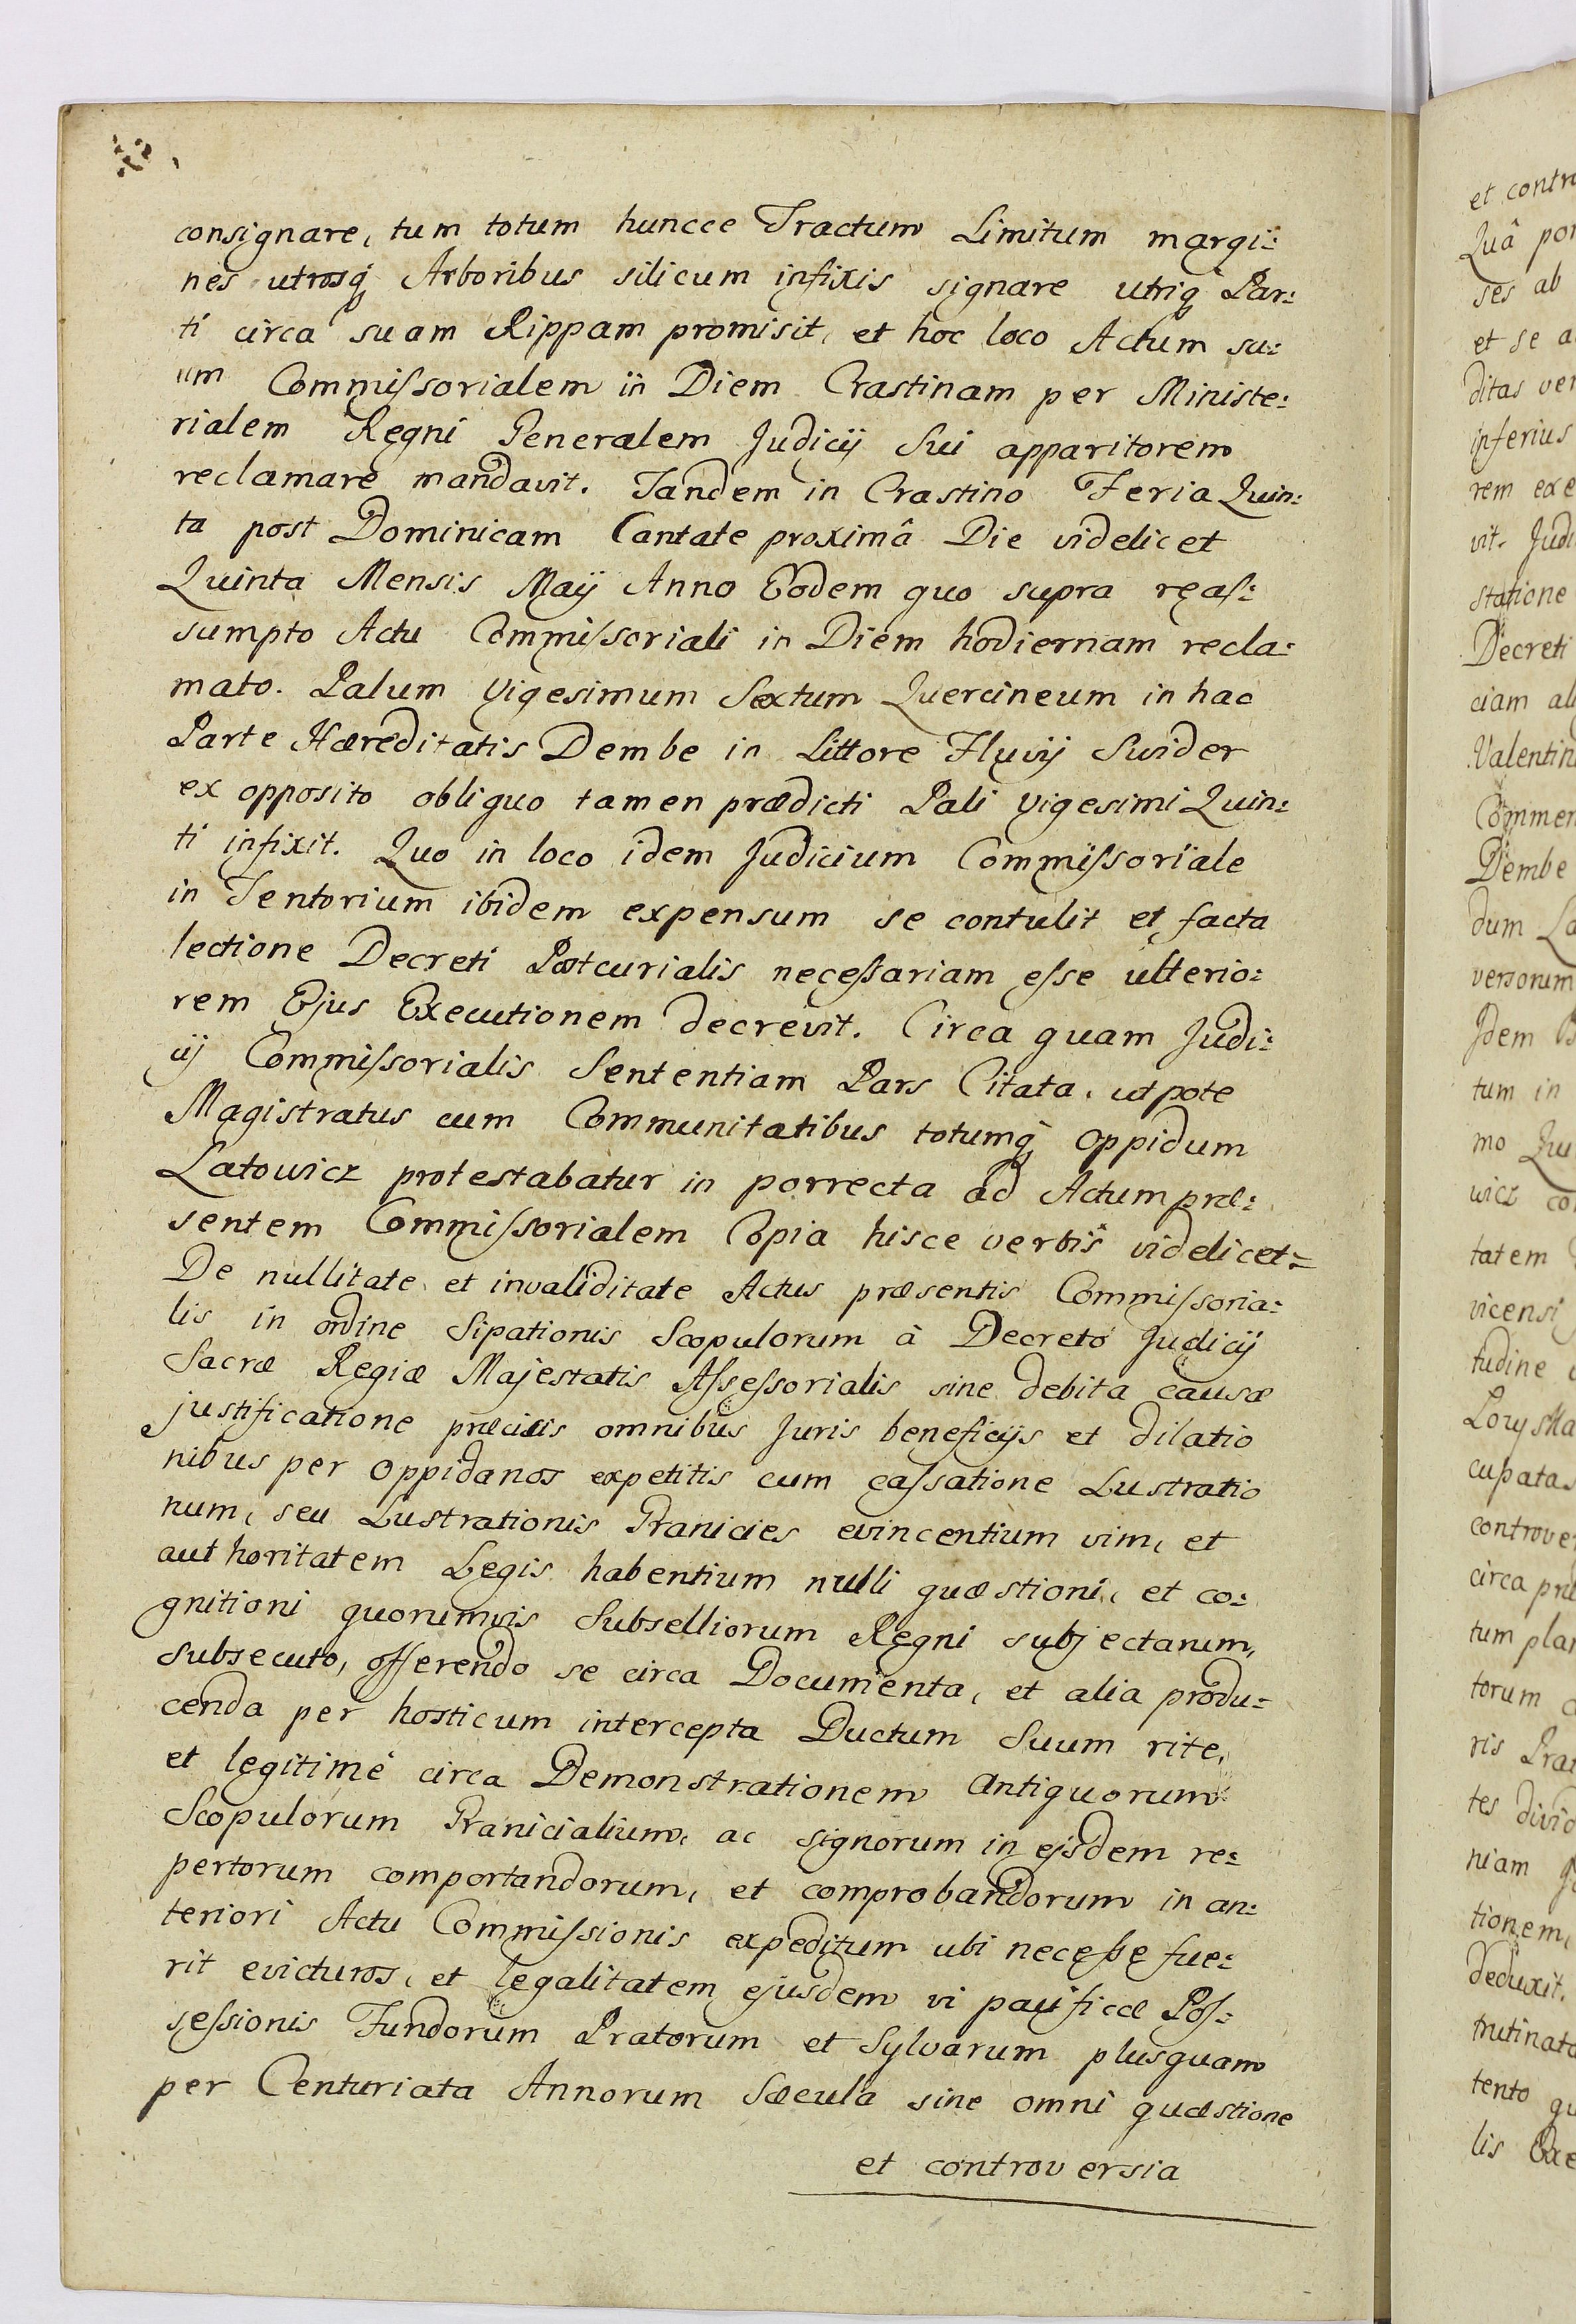 consignare, tum totum huncce Tractum Limitum margi:
nes utrosq; Arboribus silicum infixis signare utriq; Par:
ti circa suam Rippam promisit, et hoc loco Actum su:
um Commissorialem in Diem Crastinam per Ministe:
rialem Regni Generalem Judicij Sui apparitorem
reclamare mandavit. Tandem in Crastino Feria Quin:
ta post Dominicam Cantate proximâ Die videlicet
Quinta Mensis Maij Anno Eodem quo supra reas:
sumpto Actu Commissoriali in Diem hodiernam recla:
mato. Palum Vigesimum Sextum Quercineum in hac
Parte Hæreditatis Dembe in Littore Fluvij Swider
ex opposito obliquo tamen prædicti Pali Vigesimi Quin:
ti infixit. Quo in loco idem Judicium Commissoriale
in Tentorium ibidem expensum se contulit et facta
lectione Decreti Postcurialis necessariam esse ulterio:
rem Ejus Executionem decrevit. Circa quam Judi:
cij Commissorialis Sententiam Pars Citata, utpote
Magistratus cum Communitatibus totumq; Oppidum
Latowicz protestabatur in porrecta ad Actum præ:
sentem Commissorialem Copia hisce verbis videlicet:
De nullitate et invaliditate Actus præsentis Commissoria:
lis in ordine Sipationis Scopulorum à Decreto Judicij
Sacræ Regiæ Majestatis Assessorialis sine debita causæ
justificatione præcisis omnibus Juris beneficijs et dilatio
nibus per Oppidanos expetitis cum cassatione Lustratio
num, seu Lustrationis Granicies evincentium vim, et
authoritatem Legis habentium nulli quæstioni, et co:
gnitioni quorumvis Subselliorum Regni subjectarum,
subsecuto, offerendo se circa Documenta, et alia produ:
cenda per hosticum intercepta Ductum Suum rite,
et legitimé circa Demonstrationem Antiquorum
Scopulorum Granicialium, ac signorum in ejsdem re:
pertorum comportandorum, et comprobandorum in an:
teriori Actu Commissionis expeditum ubi necesse fue:
rit evicturos, et legalitatem ejusdem vi pacificæ Pos:
sessionis Fundorum Pratorum et Sylvarum plusquam
per Centuriata Annorum Sæcula sine omni quæstione
et controversia
et contro
Quâ por
ses ab
et se a
ditas ver
inferius
rem exe
vit. Judi
statione
Decreti
ciam ali
Valentin
Commen
Dembe
dum La
versorum
Idem
tum in
mo Qu
wicz co
tatem
vicensi
tudine
cupatas
controver
circa præ
tum plan
torum
ris Prat
tes divid
niam
tionem,
deduxit.
trutinato
tento qu
lis Exe